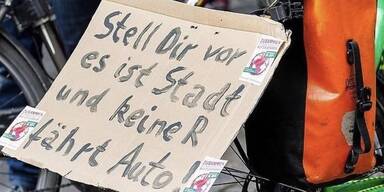 Stell Dir vor
es ist Stadt
und keine R
fährt Auto!